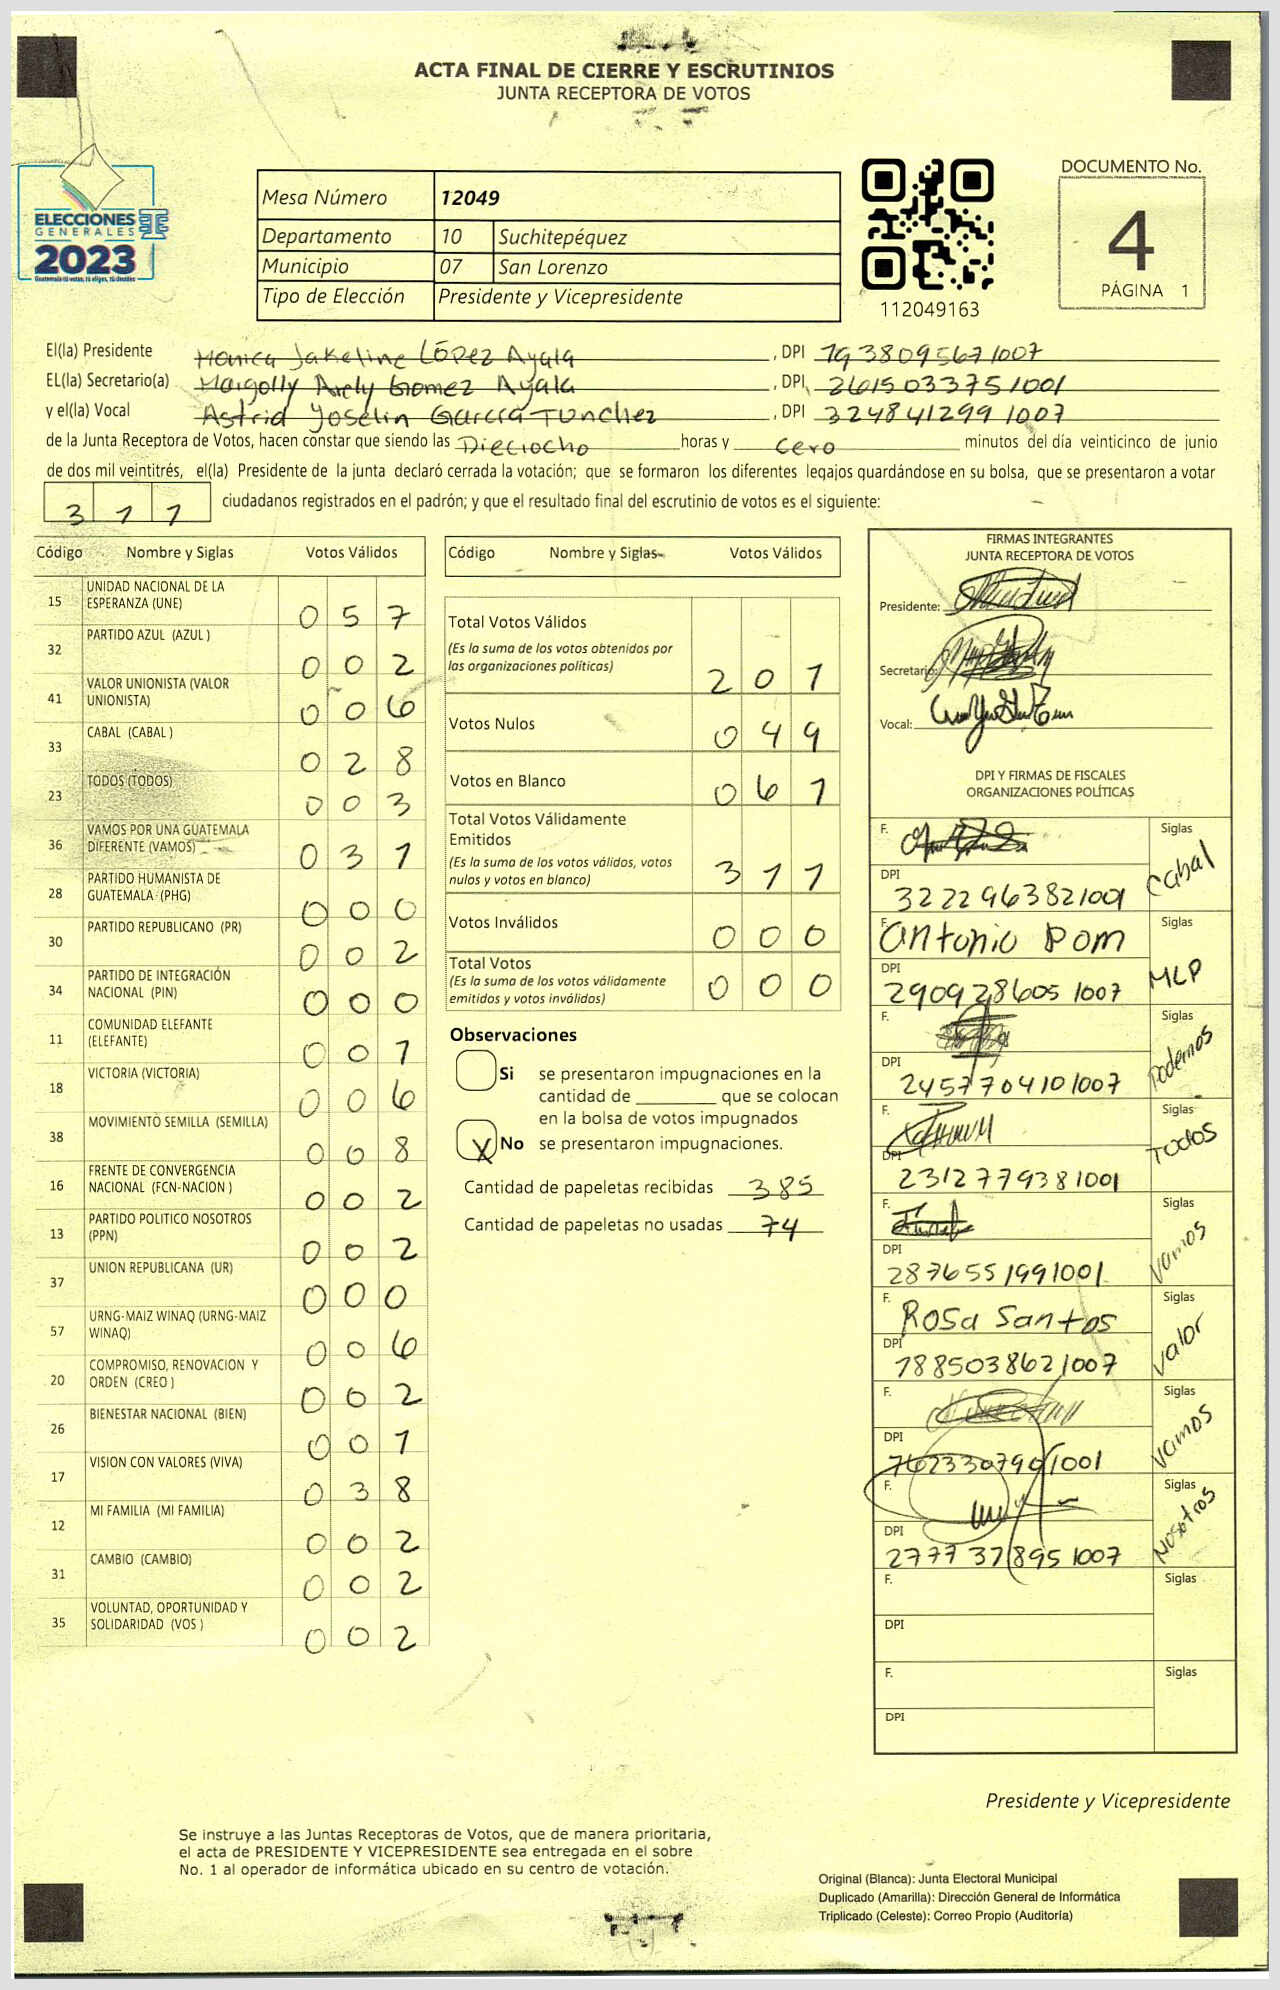 ACTA FINAL DE CIERRE Y ESCRUTINIOS
JUNTA RECEPTORA DE VOTOS
ELECCIONES
GENERALES
2023
Guatemala tú votas, tú eliges, tú decides
Mesa Número 12049
Departamento 10 Suchitepéquez
Municipio 07 San Lorenzo
Tipo de Elección Presidente y Vicepresidente
112049163
DOCUMENTO No.
4
PÁGINA 1
El(la) Presidente Monica Jakeline López Ayala, DPI 1938095671007
EL(la) Secretario(a) Margolly Arely Gomez Ayala, DPI 2615033751001
y el(la) Vocal Astrid Yoselin García Tunchez, DPI 3248412991007
de la Junta Receptora de Votos, hacen constar que siendo las Dieciocho horas y cero minutos del día veinticinco de junio
de dos mil veintitrés, el(la) Presidente de la junta declaró cerrada la votación; que se formaron los diferentes legajos quardándose en su bolsa, que se presentaron a votar
311 ciudadanos registrados en el padrón; y que el resultado final del escrutinio de votos es el siguiente:
Código Nombre y Siglas Votos Válidos
15 UNIDAD NACIONAL DE LA ESPERANZA (UNE) 057
32 PARTIDO AZUL (AZUL ) 002
41 VALOR UNIONISTA (VALOR UNIONISTA) 006
33 CABAL (CABAL ) 028
23 TODOS (TODOS) 003
36 VAMOS POR UNA GUATEMALA DIFERENTE (VAMOS) 031
28 PARTIDO HUMANISTA DE GUATEMALA (PHG) 000
30 PARTIDO REPUBLICANO (PR) 002
34 PARTIDO DE INTEGRACIÓN NACIONAL (PIN) 000
11 COMUNIDAD ELEFANTE (ELEFANTE) 001
18 VICTORIA (VICTORIA) 006
38 MOVIMIENTO SEMILLA (SEMILLA) 008
16 FRENTE DE CONVERGENCIA NACIONAL (FCN-NACION ) 002
13 PARTIDO POLITICO NOSOTROS (PPN) 002
37 UNION REPUBLICANA (UR) 000
57 URNG-MAIZ WINAQ (URNG-MAIZ WINAQ) 006
20 COMPROMISO, RENOVACION Y ORDEN (CREO ) 002
26 BIENESTAR NACIONAL (BIEN) 001
17 VISION CON VALORES (VIVA) 038
12 MI FAMILIA (MI FAMILIA) 002
31 CAMBIO (CAMBIO) 002
35 VOLUNTAD, OPORTUNIDAD Y SOLIDARIDAD (VOS ) 002
Código Nombre y Siglas Votos Válidos
Total Votos Válidos
(Es la suma de los votos obtenidos por
las organizaciones políticas) 201
Votos Nulos 049
Votos en Blanco 061
Total Votos Válidamente
Emitidos
(Es la suma de los votos válidos, votos
nulos y votos en blanco) 311
Votos Inválidos 000
Total Votos
(Es la suma de los votos válidamente
emitidos y votos inválidos) 000
Observaciones
Si se presentaron impugnaciones en la
cantidad de ________ que se colocan
en la bolsa de votos impugnados
X No se presentaron impugnaciones.
Cantidad de papeletas recibidas 385
Cantidad de papeletas no usadas 74
FIRMAS INTEGRANTES
JUNTA RECEPTORA DE VOTOS
Presidente:
Secretario:
Vocal:
DPI Y FIRMAS DE FISCALES
ORGANIZACIONES POLÍTICAS
F. Siglas Cabal
DPI 3222963821001
F. Antonio Pom Siglas MLP
DPI 2909286051007
F. Siglas Podemos
DPI 2457704101007
F. Siglas TODOS
DPI 2312779381001
F. Siglas Vamos
DPI 2876551991001
F. Rosa Santos Siglas Valor
DPI 1885038621007
F. Siglas Vamos
DPI 7623307901001
F. Siglas Nosotros
DPI 2777378951007
F. Siglas
DPI
F. Siglas
DPI
Presidente y Vicepresidente
Se instruye a las Juntas Receptoras de Votos, que de manera prioritaria,
el acta de PRESIDENTE Y VICEPRESIDENTE sea entregada en el sobre
No. 1 al operador de informática ubicado en su centro de votación.
Original (Blanca): Junta Electoral Municipal
Duplicado (Amarilla): Dirección General de Informática
Triplicado (Celeste): Correo Propio (Auditoría)